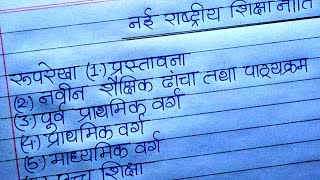 नई राष्ट्रीय शिक्षा नीति
रूपरेखा (1.) प्रस्तावना
(2.) नवीन शैक्षिक ढांचा तथा पाठ्यक्रम
(3.) पूर्व प्राथमिक वर्ग
(4.) प्राथमिक वर्ग
(5.) माध्यमिक वर्ग
शिक्षा